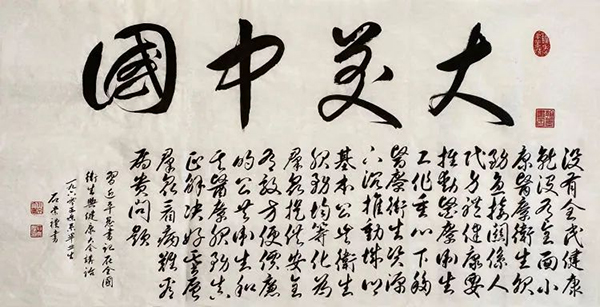 大美中國
没有全民健康
就没有全面小
康醫療衛生服
務直接關係人
民身體健康要
推動醫療衛生
工作重心下移
醫療衛生資源
下沉推動城鄉
基本公共衛生
服務均等化為
群衆提供安全
有效方便價廉
的公共衛生和
基醫療服務真
正解決好基層
群衆看病難看
病貴問題
習近平總書記在全國
衛生與健康大會講話